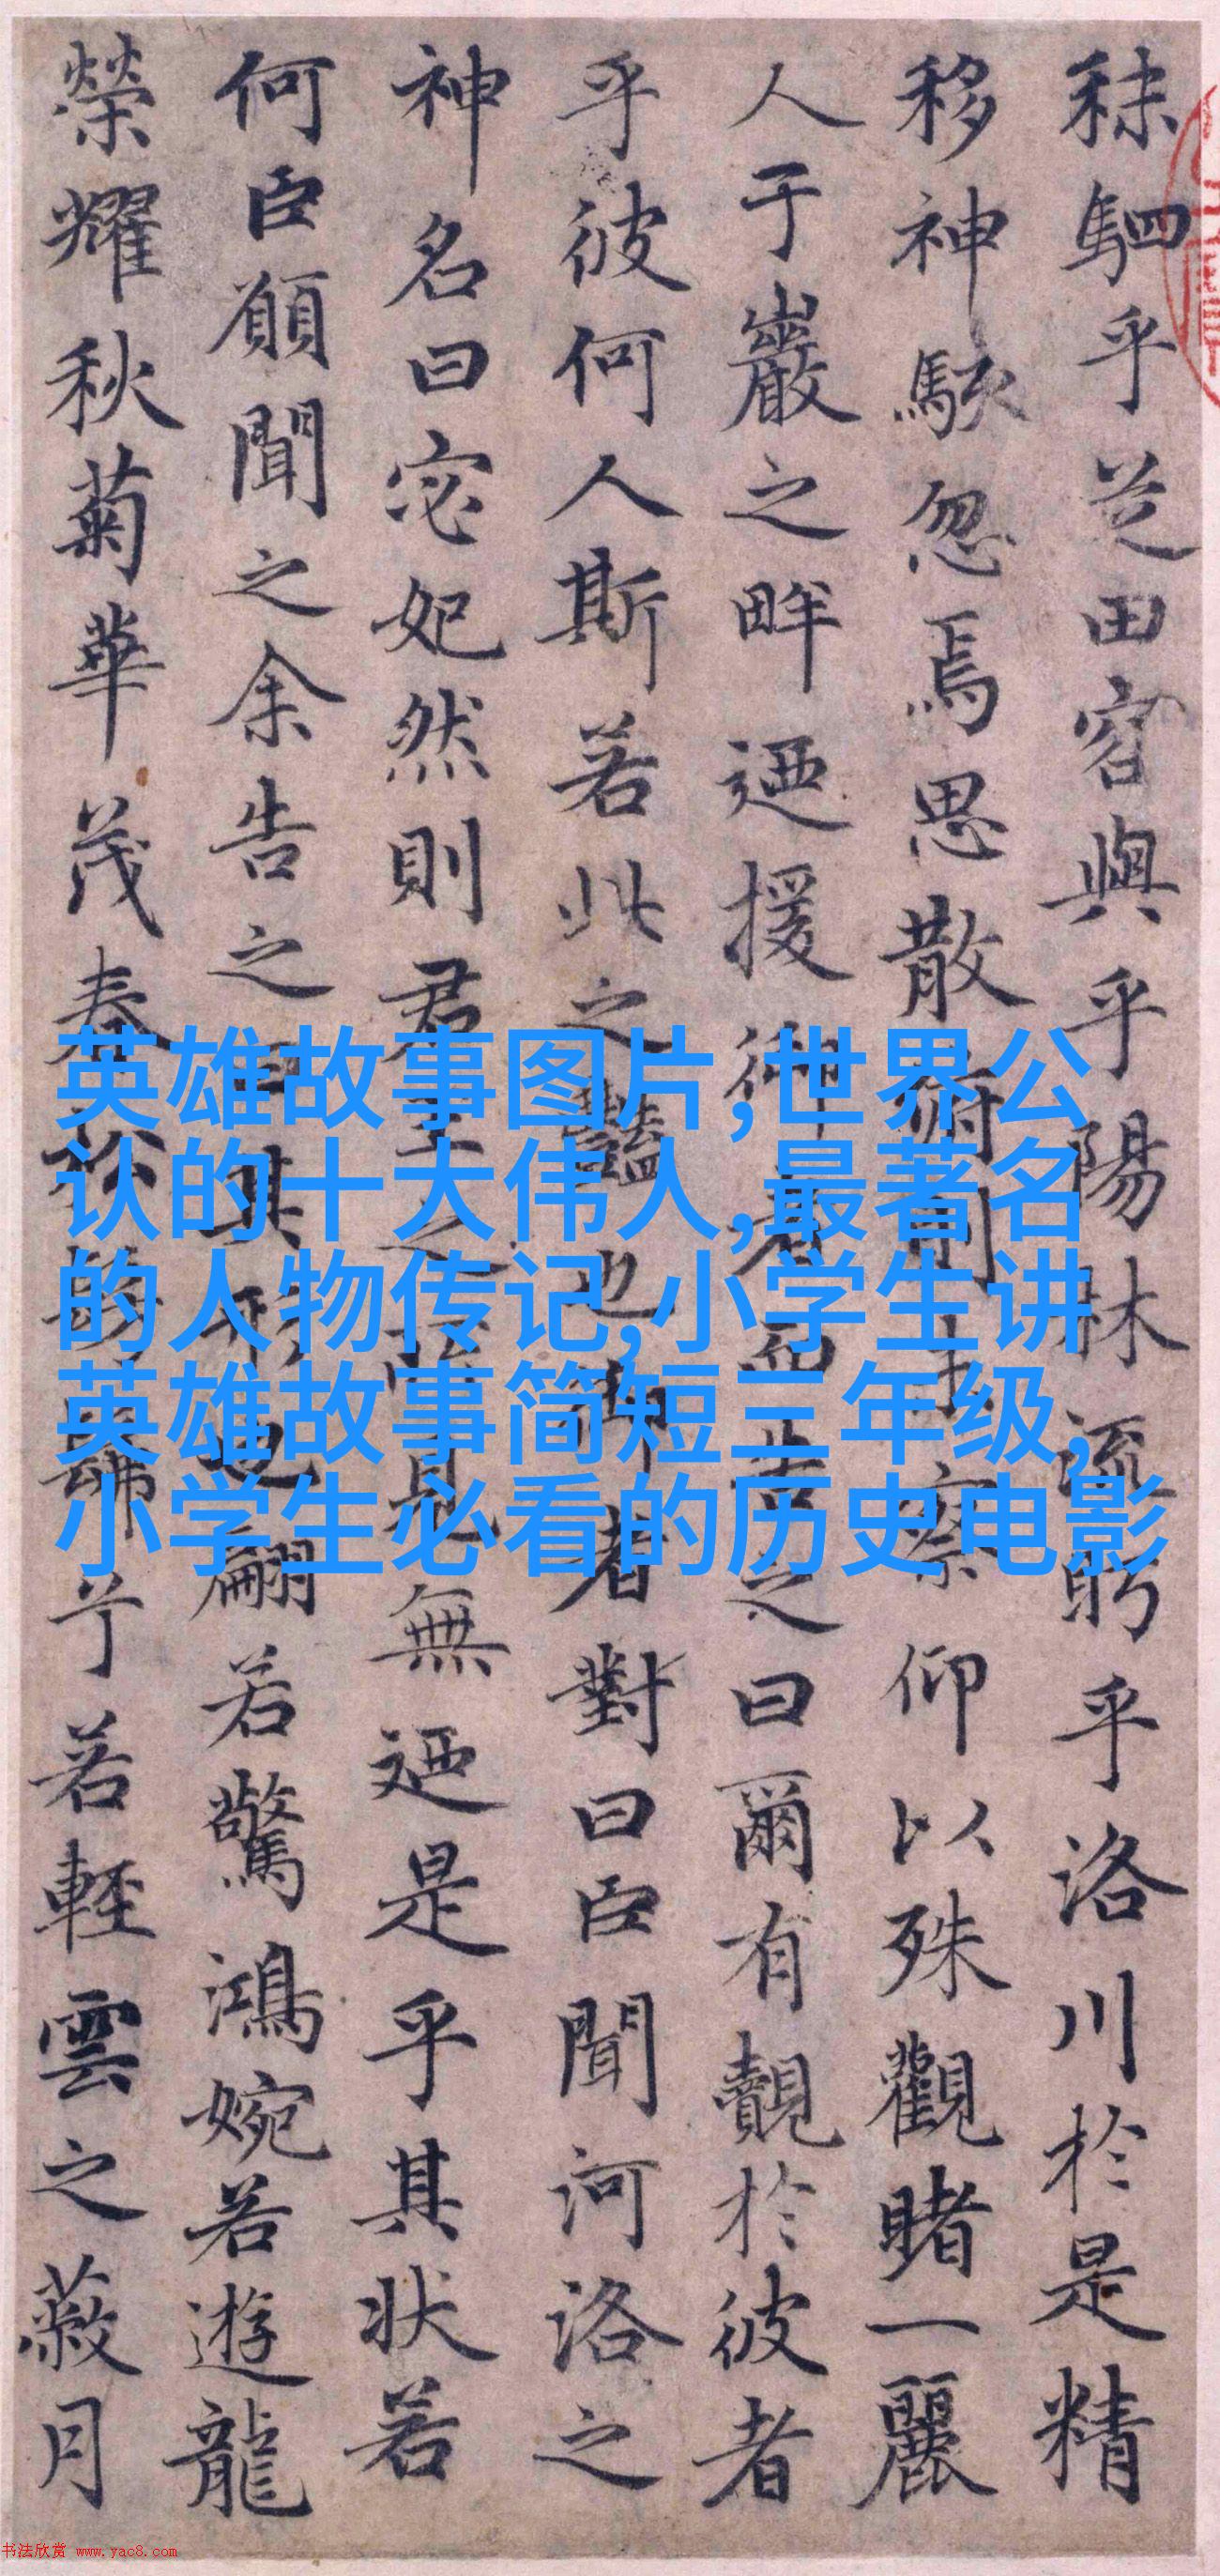 秣駟乎芝田容與乎陽林流眄乎洛川於是精
移神駭忽焉思散俯則未察仰以殊觀睹一麗
人于巖之畔迺援御者而告之曰爾有覿於彼者
乎彼何人斯若此之豔也御者對曰臣聞河洛之
神名曰宓妃然則君王之所見無迺是乎其狀若
何臣願聞之余告之曰其形也翩若驚鴻婉若遊龍
榮耀秋菊華茂春松髣髴兮若輕雲之蔽月
英雄故事图片,世界公
认的十大伟人,最著名
的人物传记,小学生讲
英雄故事简短三年级,
小学生必看的历史电影
书法欣赏 www.yac8.com